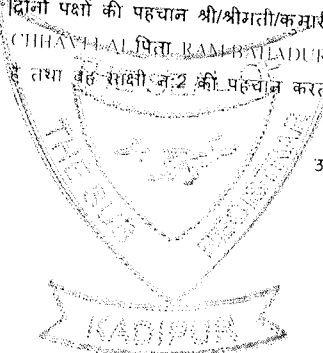 दोनों पक्षों की पहचान श्री/श्रीमती/कुमारी
CHHAVI LAL पिता RAM BAHADUR
है तथा वह साक्षी न:2 की पहचान करत
3
THE SUB REGISTRAR
KADIPUR